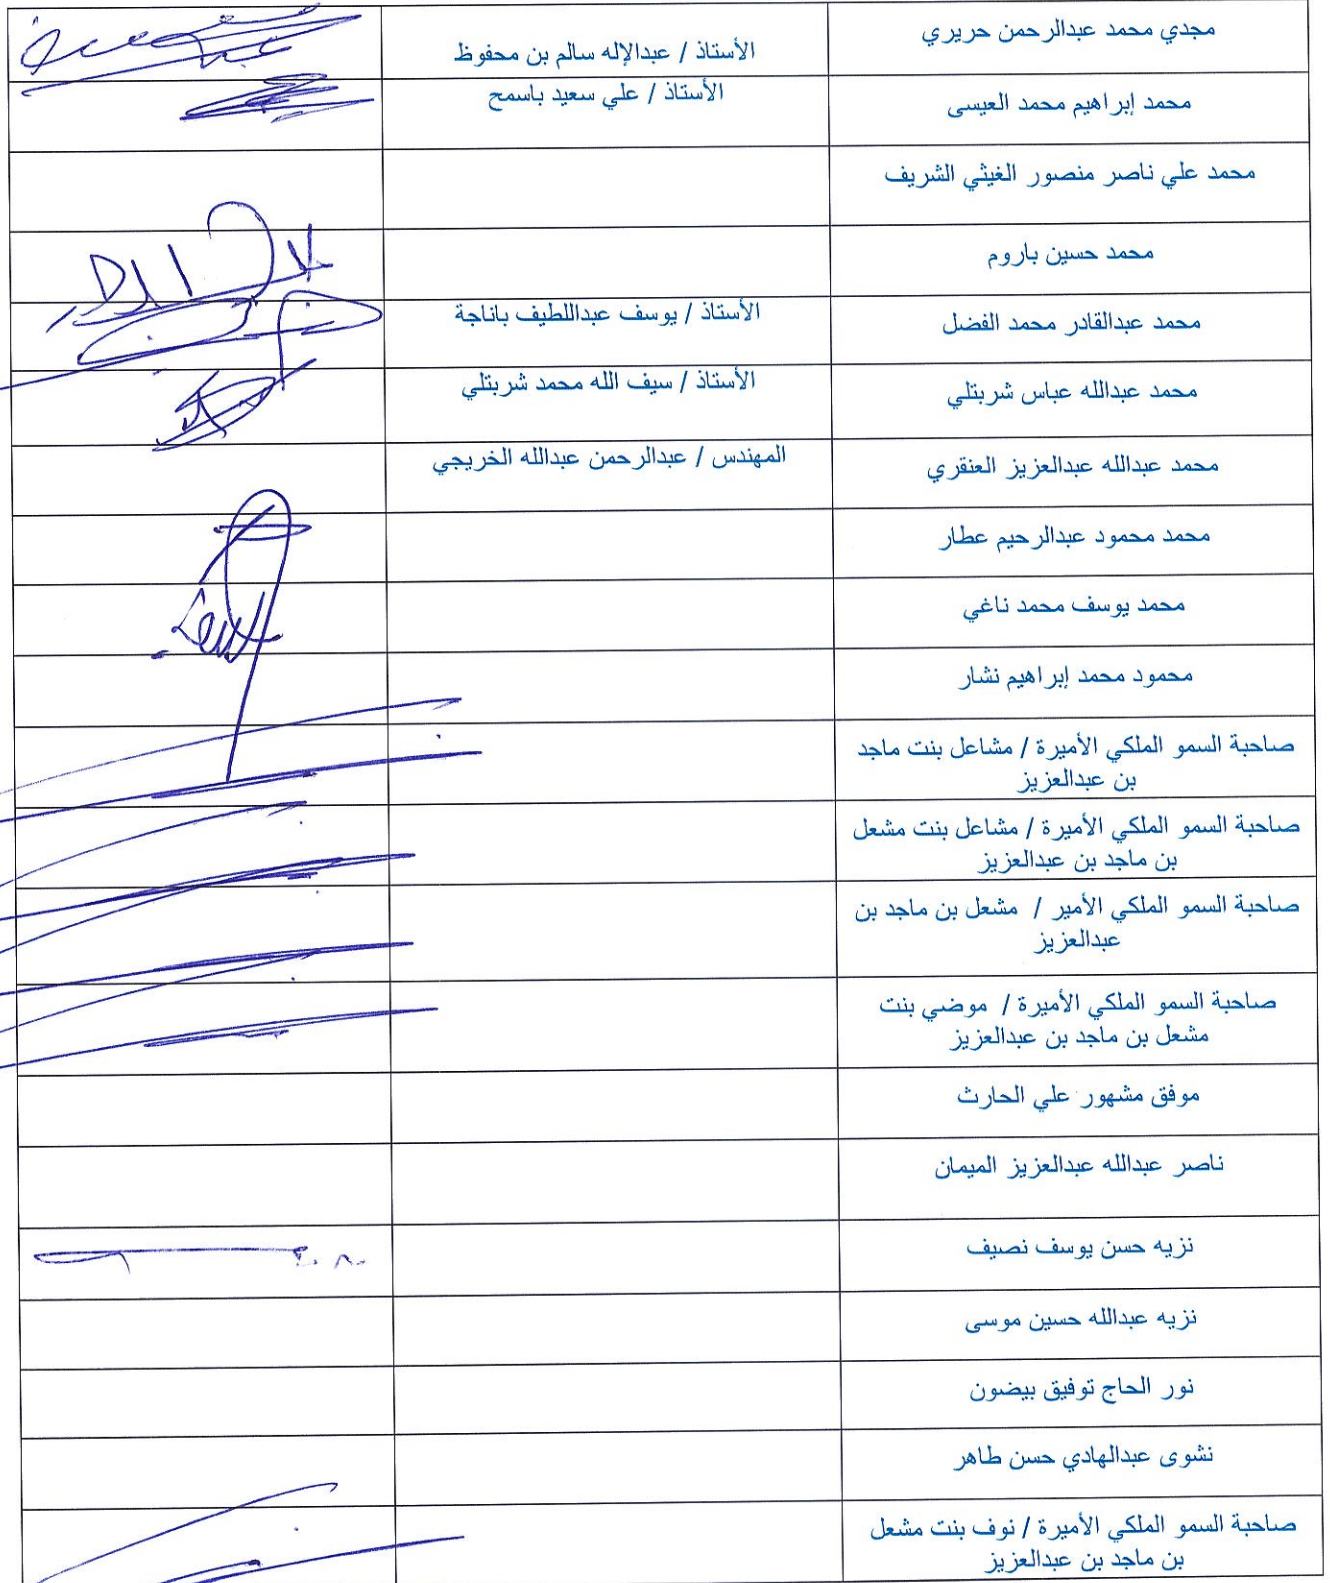 مجدي محمد عبدالرحمن حريري
الأستاذ / عبدالإله سالم بن محفوظ
محمد إبراهيم محمد العيسى
الأستاذ / علي سعيد باسمح
محمد علي ناصر منصور الغيثي الشريف
محمد حسين باروم
محمد عبدالقادر محمد الفضل
الأستاذ / يوسف عبداللطيف باناجة
محمد عبدالله عباس شربتلي
الأستاذ / سيف الله محمد شربتلي
محمد عبدالله عبدالعزيز العنقري
المهندس / عبدالرحمن عبدالله الخريجي
محمد محمود عبدالرحيم عطار
محمد يوسف محمد ناغي
محمود محمد إبراهيم نشار
صاحبة السمو الملكي الأميرة / مشاعل بنت ماجد
بن عبدالعزيز
صاحبة السمو الملكي الأميرة / مشاعل بنت مشعل
بن ماجد بن عبدالعزيز
صاحبة السمو الملكي الأمير / مشعل بن ماجد بن
عبدالعزيز
صاحبة السمو الملكي الأميرة / موضي بنت
مشعل بن ماجد بن عبدالعزيز
موفق مشهور علي الحارث
ناصر عبدالله عبدالعزيز الميمان
نزيه حسن يوسف نصيف
نزيه عبدالله حسين موسى
نور الحاج توفيق بيضون
نشوى عبدالهادي حسن طاهر
صاحبة السمو الملكي الأميرة / نوف بنت مشعل
بن ماجد بن عبدالعزيز